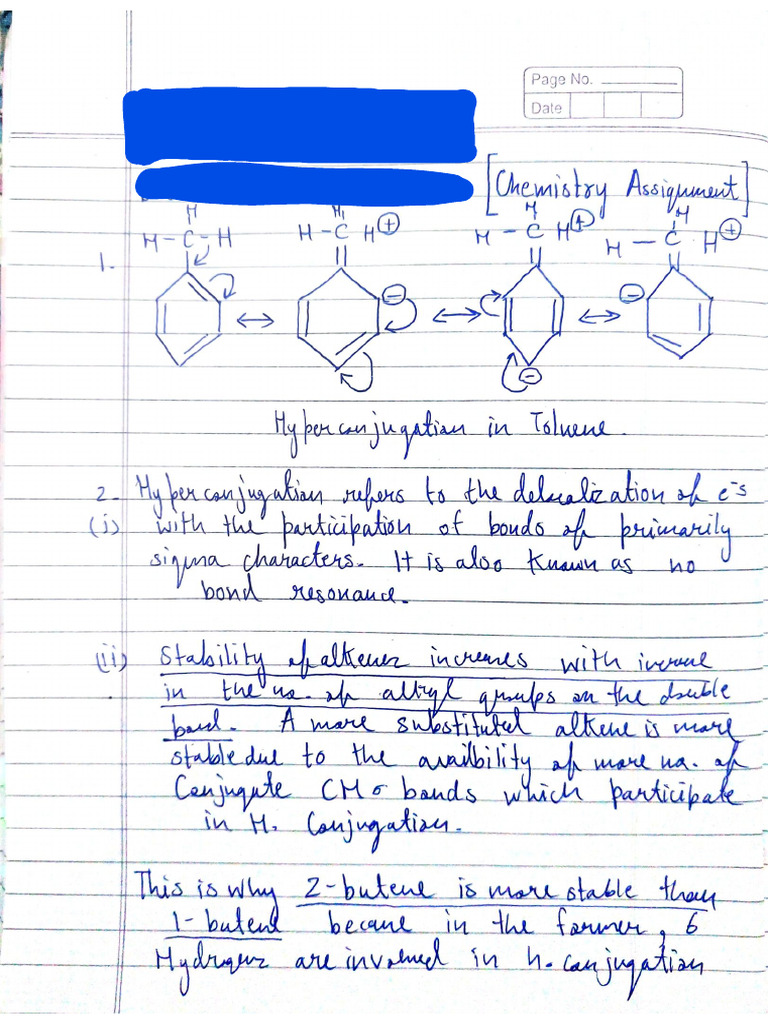 Page No.
Date
[Chemistry Assignment]
H H H H
H-C-H H-C H⊕ H-C H⊕ H-C H⊕
1.
⊖ ⊖
↔ ↔ ↔
⊖
Hyperconjugation in Toluene.
2- Hyperconjugation refers to the delocalization of e⁻s
(i) with the participation of bonds of primarily
sigma characters. It is also known as no
bond resonance.
(ii) Stability of alkenes increases with increase
in the no. of alkyl groups on the double
bond. A more substituted alkene is more
stable due to the availbility of more no. of
Conjugate CH σ bonds which participate
in H. Conjugation.
This is why 2-butene is more stable than
1-butene because in the former, 6
Hydrogens are involved in h. conjugation